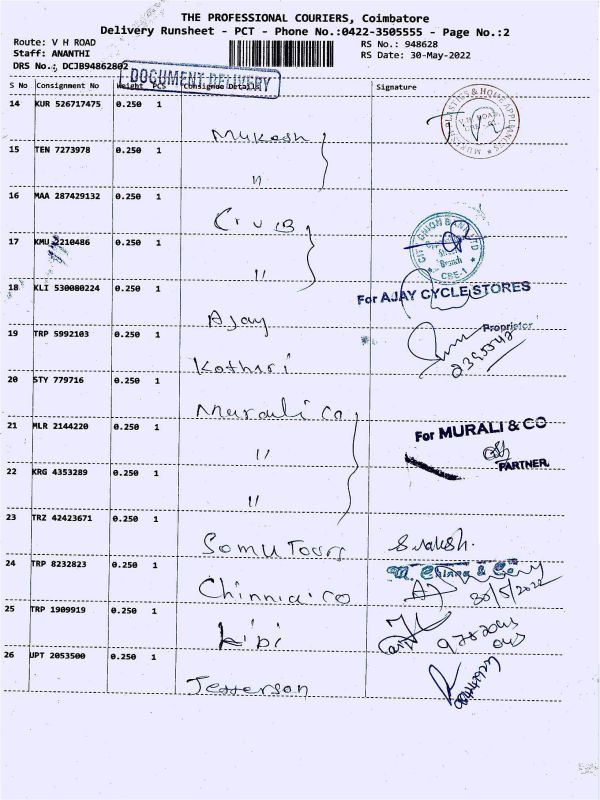 THE PROFESSIONAL COURIERS, Coimbatore
Delivery Runsheet - PCT - Phone No.:0422-3505555 - Page No.:2
Route: V H ROAD
Staff: ANANTHI
DRS No.: DCJB94862802
RS No.: 948628
RS Date: 30-May-2022
DOCUMENT DELIVERY
S No Consignment No Weight PCS Consignee Details Signature
14 KUR 526717475 0.250 1
Mukesh
15 TEN 7273978 0.250 1
"
16 MAA 287429132 0.250 1
CruB
17 KMU 2210486 0.250 1
"
CITY UNION BANK LTD
Branch
CBE-1
18 KLI 530080224 0.250 1
Ajay
For AJAY CYCLE STORES
Proprietor
19 TRP 5992103 0.250 1
Kothari
2395542
20 STY 779716 0.250 1
Murali co
21 MLR 2144220 0.250 1
"
For MURALI & CO
PARTNER
22 KRG 4353289 0.250 1
"
23 TRZ 42423671 0.250 1
Somu Tours
24 TRP 8232823 0.250 1
Chinnia co
30/5/2022
25 TRP 1909919 0.250 1
kibi
26 UPT 2053500 0.250 1
Jefferson